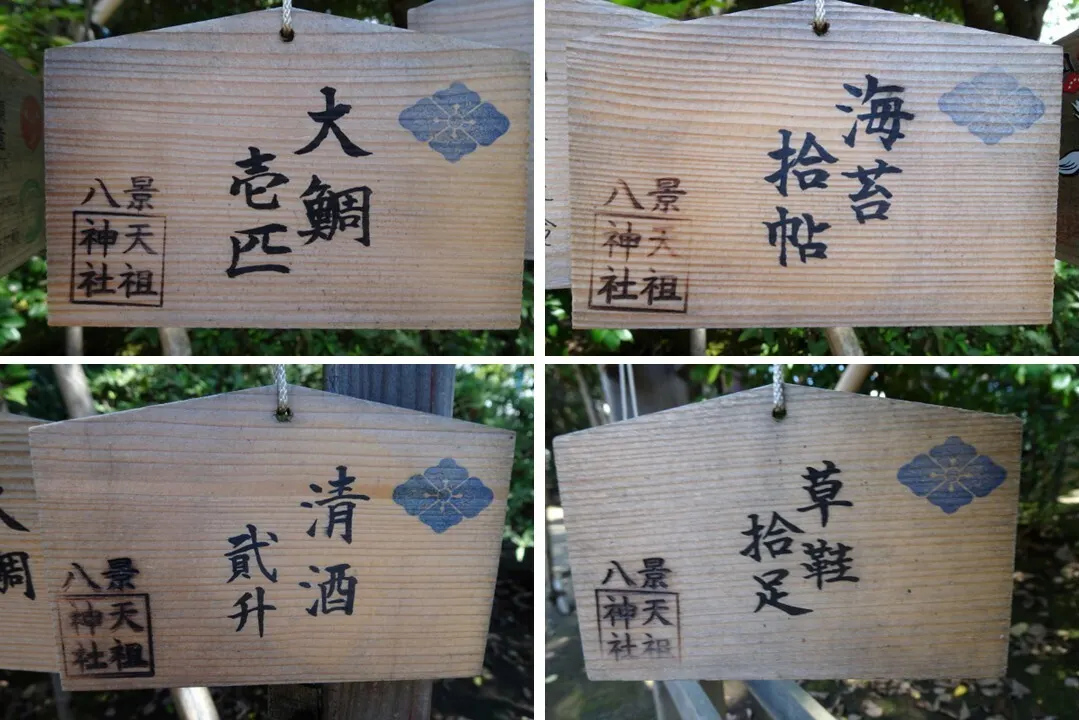 大鯛
壱匹
八景
天祖
神社
海苔
拾帖
八景
天祖
神社
清酒
貳升
八景
天祖
神社
大鯛
草鞋
拾足
八景
天祖
神社